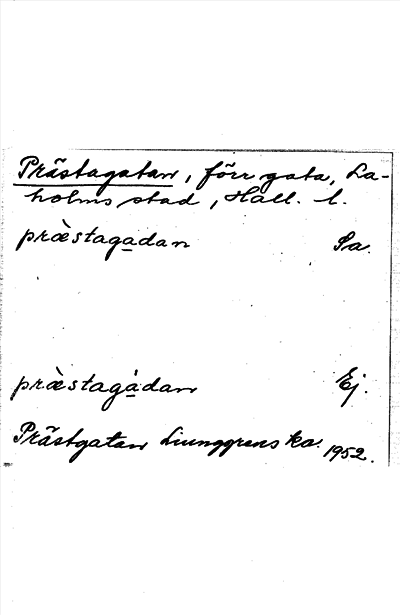 Prästagatan, förr gata, La-
holms stad, Hall. l.
præ̀stagadan Sa.
præ̀stagádan Ej.
Prästgatan Ljunggrens ka. 1952.